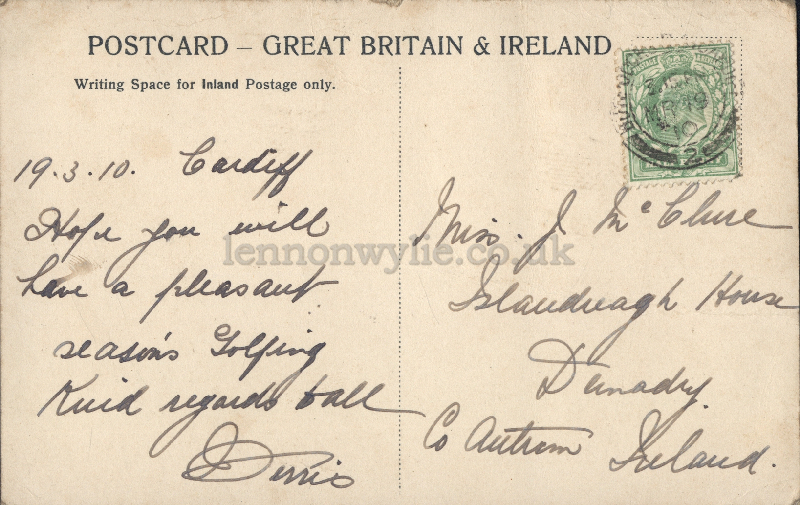 POSTCARD – GREAT BRITAIN & IRELAND
Writing Space for Inland Postage only.
19.3.10. Cardiff
Hope you will
have a pleasant
season's Golfing
Kind regards to all
Miss. J McClure
Islandreagh House
Dunadry.
Co Antrim Ireland.
lennonwylie.co.uk